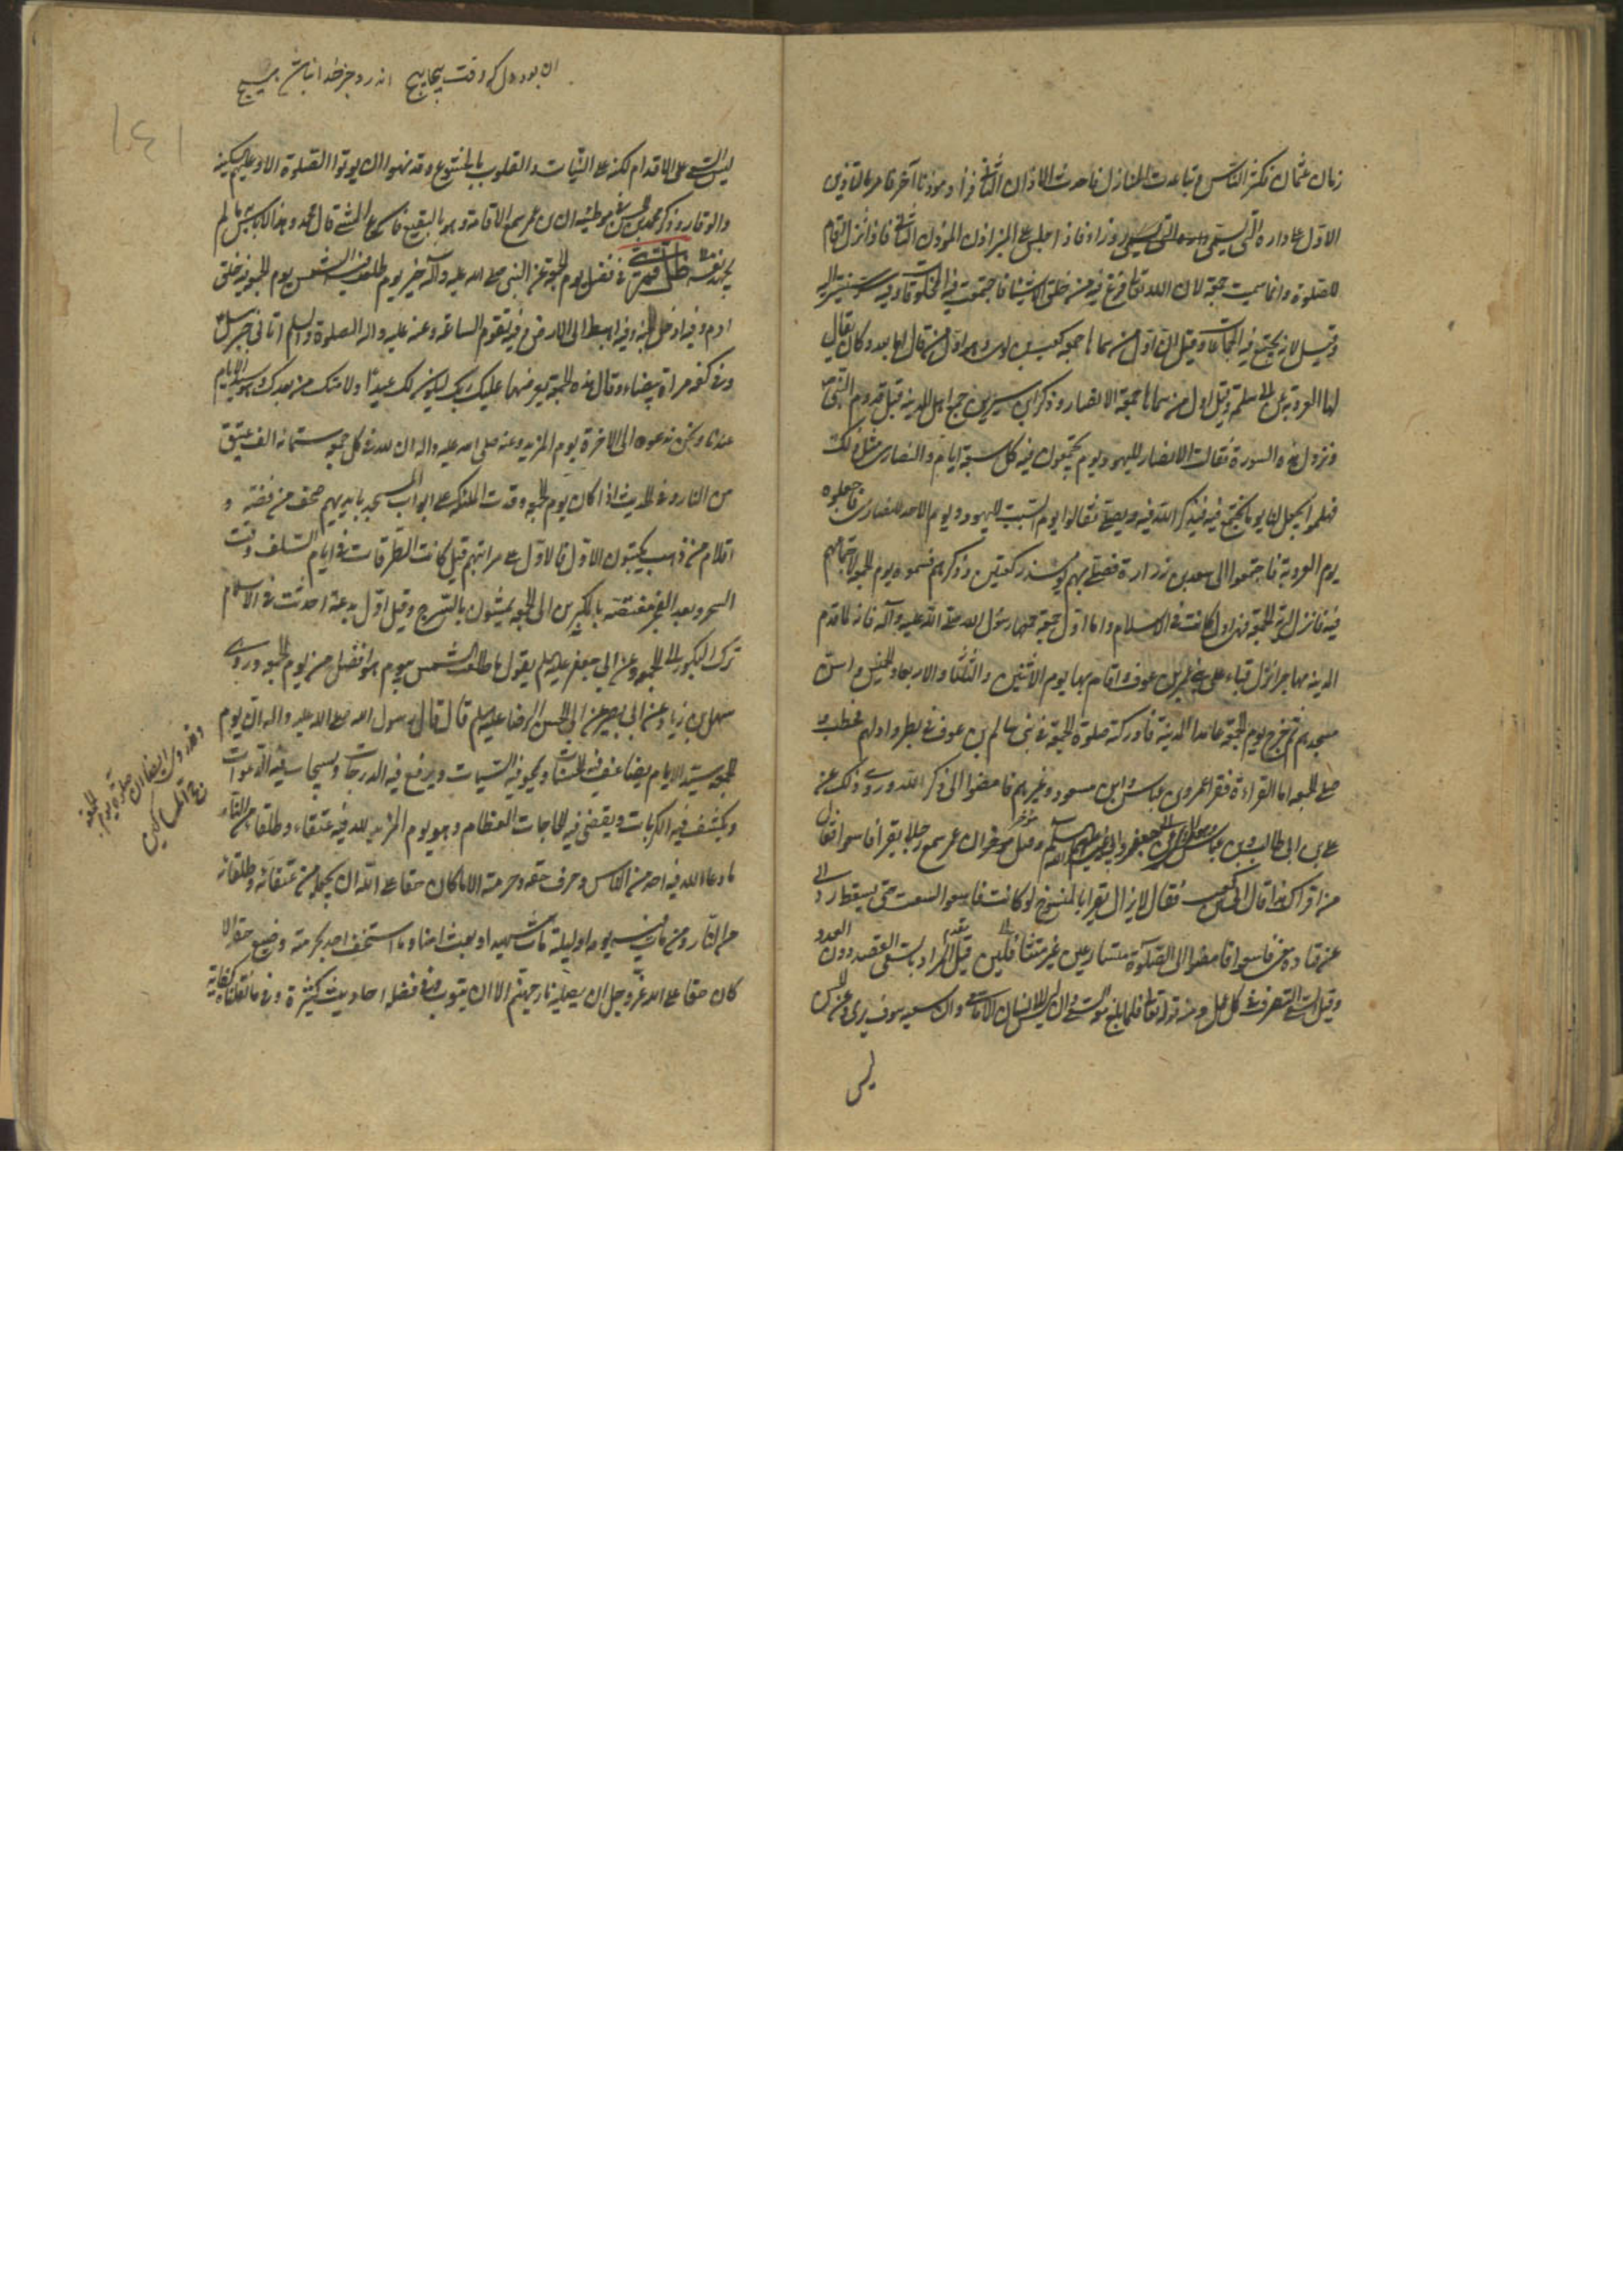 زمان عثمان فكثر الناس و تباعدت المنازل فاحدث الاذان الثاني فزاد موذنا آخر فامر بالتاذين
الاول على داره التي تسمى زوراء فاذا جلس على المنبر اذن الموذن الثاني فاذا نزل اقام
للصلوة و انما سميت جمعة لان الله تعالى فرغ فيه من خلق الاشياء فاجتمعت فيه المخلوقات و فيه
و قيل لانه يجتمع فيه الجماعات و قيل ان اول من سماها جمعة كعب بن لوى و هو اول من قال اما بعد و كان يقال
لها العروبة عن ابي سلمة و قيل اول من سماها جمعة الانصار و ذكر ابن سيرين جمع اهل المدينة قبل قدوم النبي ص
و نزول هذه السورة فقالت الانصار لليهود يوم يجتمعون فيه كل سبعة ايام و للنصارى مثل ذلك
فهلموا نجعل لنا يوما نجتمع فيه فنذكر الله فيه و نصلى فقالوا يوم السبت لليهود و يوم الاحد للنصارى فاجعلوه
يوم العروبة فاجتمعوا الى سعد بن زرارة فصلى بهم يومئذ ركعتين و ذكرهم فسموه يوم الجمعة لاجتماعهم
فيه فانزل الله آية الجمعة فهى اول جمعة كانت في الاسلام و اما اول جمعة جمعها رسول الله صلى الله عليه و آله فانه لما قدم
المدينة مهاجرا نزل قباء على بنى عمرو بن عوف و اقام بها يوم الاثنين و الثلثا و الاربعا و الخميس و اسس
مسجدهم ثم خرج يوم الجمعة عامدا المدينة فادركته صلوة الجمعة في بنى سالم بن عوف في بطن واد لهم فخطب و
صلى الجمعة اما القراءة فقرأ عمر و ابن عباس و ابن مسعود و غيرهم فامضوا الى ذكر الله و روى ذلك عن
على بن ابى طالب و ابن عباس و ابى جعفر و ابى عبد الله عليهم السلم و قيل ان عمر سمع رجلا يقرأ فاسعوا فقال
من اقراك هذا قال ابى بن كعب فقال لا يزال يقرأ بالمنسوخ لو كانت فاسعوا لسعيت حتى يسقط ردائى
عن قتادة معنى فاسعوا فامضوا الى الصلوة متسارعين غير متثاقلين قيل المراد بالسعى القصد دون العدو
و قيل السعى التصرف في كل عمل و منه قوله تعالى فلما بلغ معه السعى و ان ليس للانسان الا ما سعى و ان سعيه سوف يرى و عن الحسن
ليس
ليس السعى على الاقدام لكنه على النيات و القلوب بالخشوع و قد نهوا ان يوتوا الصلوة الا و عليهم السكينة
و الوقار و ذكر محمد بن الحسن في موطئه ان ابن عمر سمع الاقامة و هو بالبقيع فاسرع المشى قال محمد و هذا لا باس به ما لم
يجهد نفسه خاتمة في فضل يوم الجمعة عن النبى صلى الله عليه و آله خير يوم طلعت فيه الشمس يوم الجمعة فيه خلق
ادم و فيه ادخل الجنة و فيه اهبط الى الارض و فيه تقوم الساعة و عنه عليه و اله الصلوة و السلم اتانى جبرئيل
و في كفه مراة بيضاء و قال هذه الجمعة يعرضها عليك ربك ليكون لك عيدا و لامتك من بعدك و هو سيد الايام
عندنا و نحن ندعوه الى الاخرة يوم المزيد و عنه صلى الله عليه و اله ان لله في كل جمعة ستمائة الف عتيق
من النار و في الحديث اذا كان يوم الجمعة قعدت الملئكة على ابواب المسجد بايديهم صحف من فضة و
اقلام من ذهب يكتبون الاول فالاول على مراتبهم قيل كانت الطرقات في ايام السلف وقت
السحر و بعد الفجر مغتصة بالمبكرين الى الجمعة يمشون بالسرج و قيل اول بدعة احدثت في الاسلام
ترك البكور الى الجمعة و عن ابى جعفر عليه السلم يقول ما طلعت الشمس بيوم هو افضل من يوم الجمعة و روى
سهل بن زياد عن ابى بصير عن ابى الحسن الرضا عليه السلم قال قال رسول الله صلى الله عليه و اله ان يوم
الجمعة سيد الايام يضاعف فيه الحسنات و يمحو فيه السيئات و يرفع فيه الدرجات و يستجاب فيه الدعوات
و يكشف فيه الكربات و يقضى فيه الحاجات العظام و هو يوم المزيد لله فيه عتقاء و طلقاء من النار
ما دعا الله فيه احد من الناس و عرف حقه و حرمته الا كان حقا على الله ان يجعله من عتقائه و طلقائه
من النار و من مات فيه يومه او ليلته مات شهيدا و بعث امنا و ما استخف احد بحرمته و ضيع حقه الا
كان حقا على الله عز و جل ان يصليه نار جهنم الا ان يتوب و في فضله احاديث كثيرة و فيما نقلناه كفاية